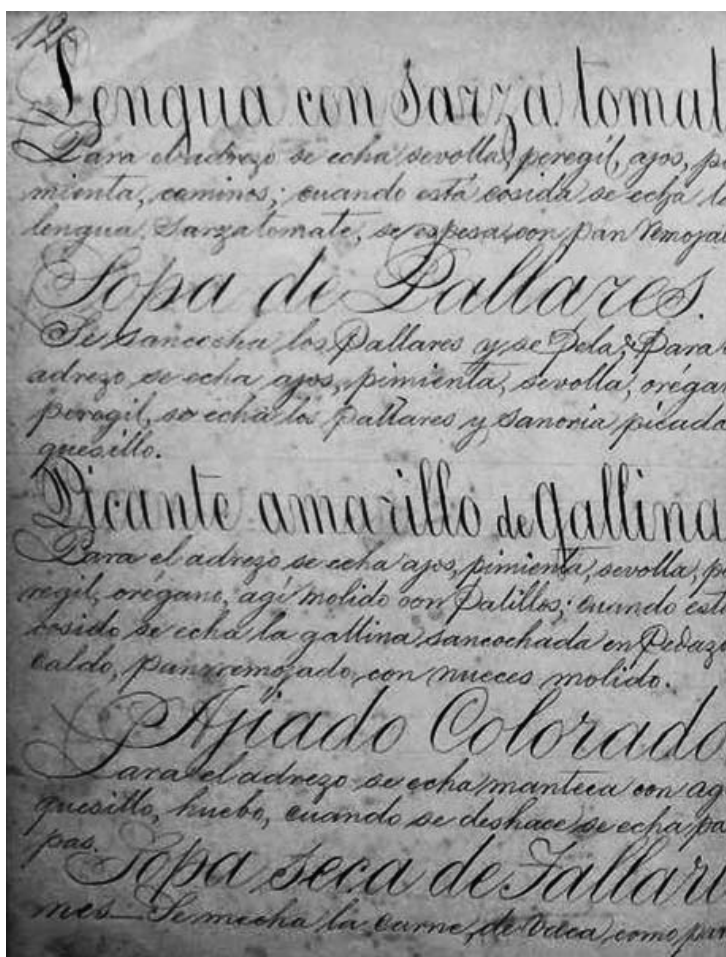 126
Lengua con Sarza tomat
Para el adrezo se echa sevolla, peregil, ajos, pi
mienta, cominos; cuando está cosida se echa la
lengua, Sarza tomate, se espesa con pan remoja
Sopa de Pallares.
Se sancocha los Pallares y se Pela; Para
adrezo se echa ajos, pimienta, sevolla, oréga
peregil, se echa los Pallares y sanoria picada
quesillo.
Picante amarillo de gallina
Para el adrezo se echa ajos, pimienta, sevolla, pe
regil, orégano, agi molido con Palillos; cuando est
cosido se echa la gallina sancochada en Pedazo
caldo, pan remojado, con nueces molido.
Ajiado Colorado
Para el adrezo se echa manteca con ag
quesillo, huebo, cuando se deshace se echa pa
pas.
Sopa seca de Tallari
nes—Se mecha la carne, de Vaca, como par